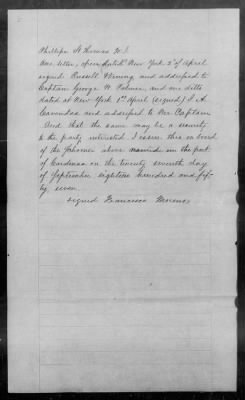 Phillips St Thomas W. I.
One letter, open, dated New York 2d of April
signed Russell Vining and addressed to
Captain George W. Palmer, and one ditto
dated at New York 1st April (signed) J. A.
and addressed to the Captain
And that the same may be a security
to the party interested I issue this on board
of the Schooner above named in the port
of Cardenas on the twenty seventh day
of September eighteen hundred and fif-
ty seven.
signed Francisco Moreno